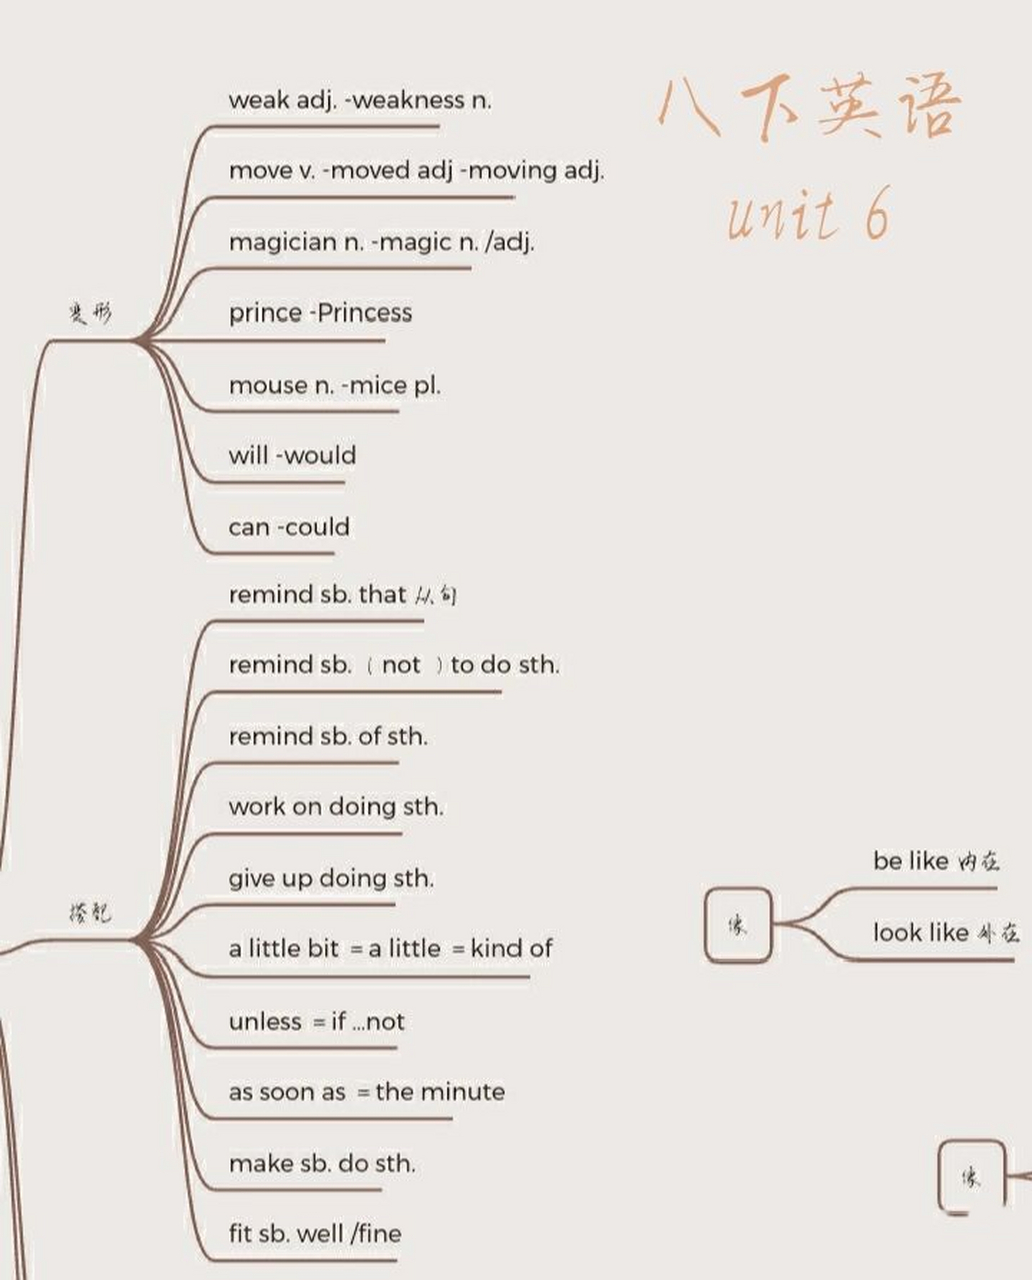 八下英语
unit 6
变形
weak adj. -weakness n.
move v. -moved adj -moving adj.
magician n. -magic n. /adj.
prince -Princess
mouse n. -mice pl.
will -would
can -could
搭配
remind sb. that 从句
remind sb.（ not ）to do sth.
remind sb. of sth.
work on doing sth.
give up doing sth.
a little bit = a little = kind of
unless = if ...not
as soon as = the minute
make sb. do sth.
fit sb. well /fine
像
be like 内在
look like 外在
像